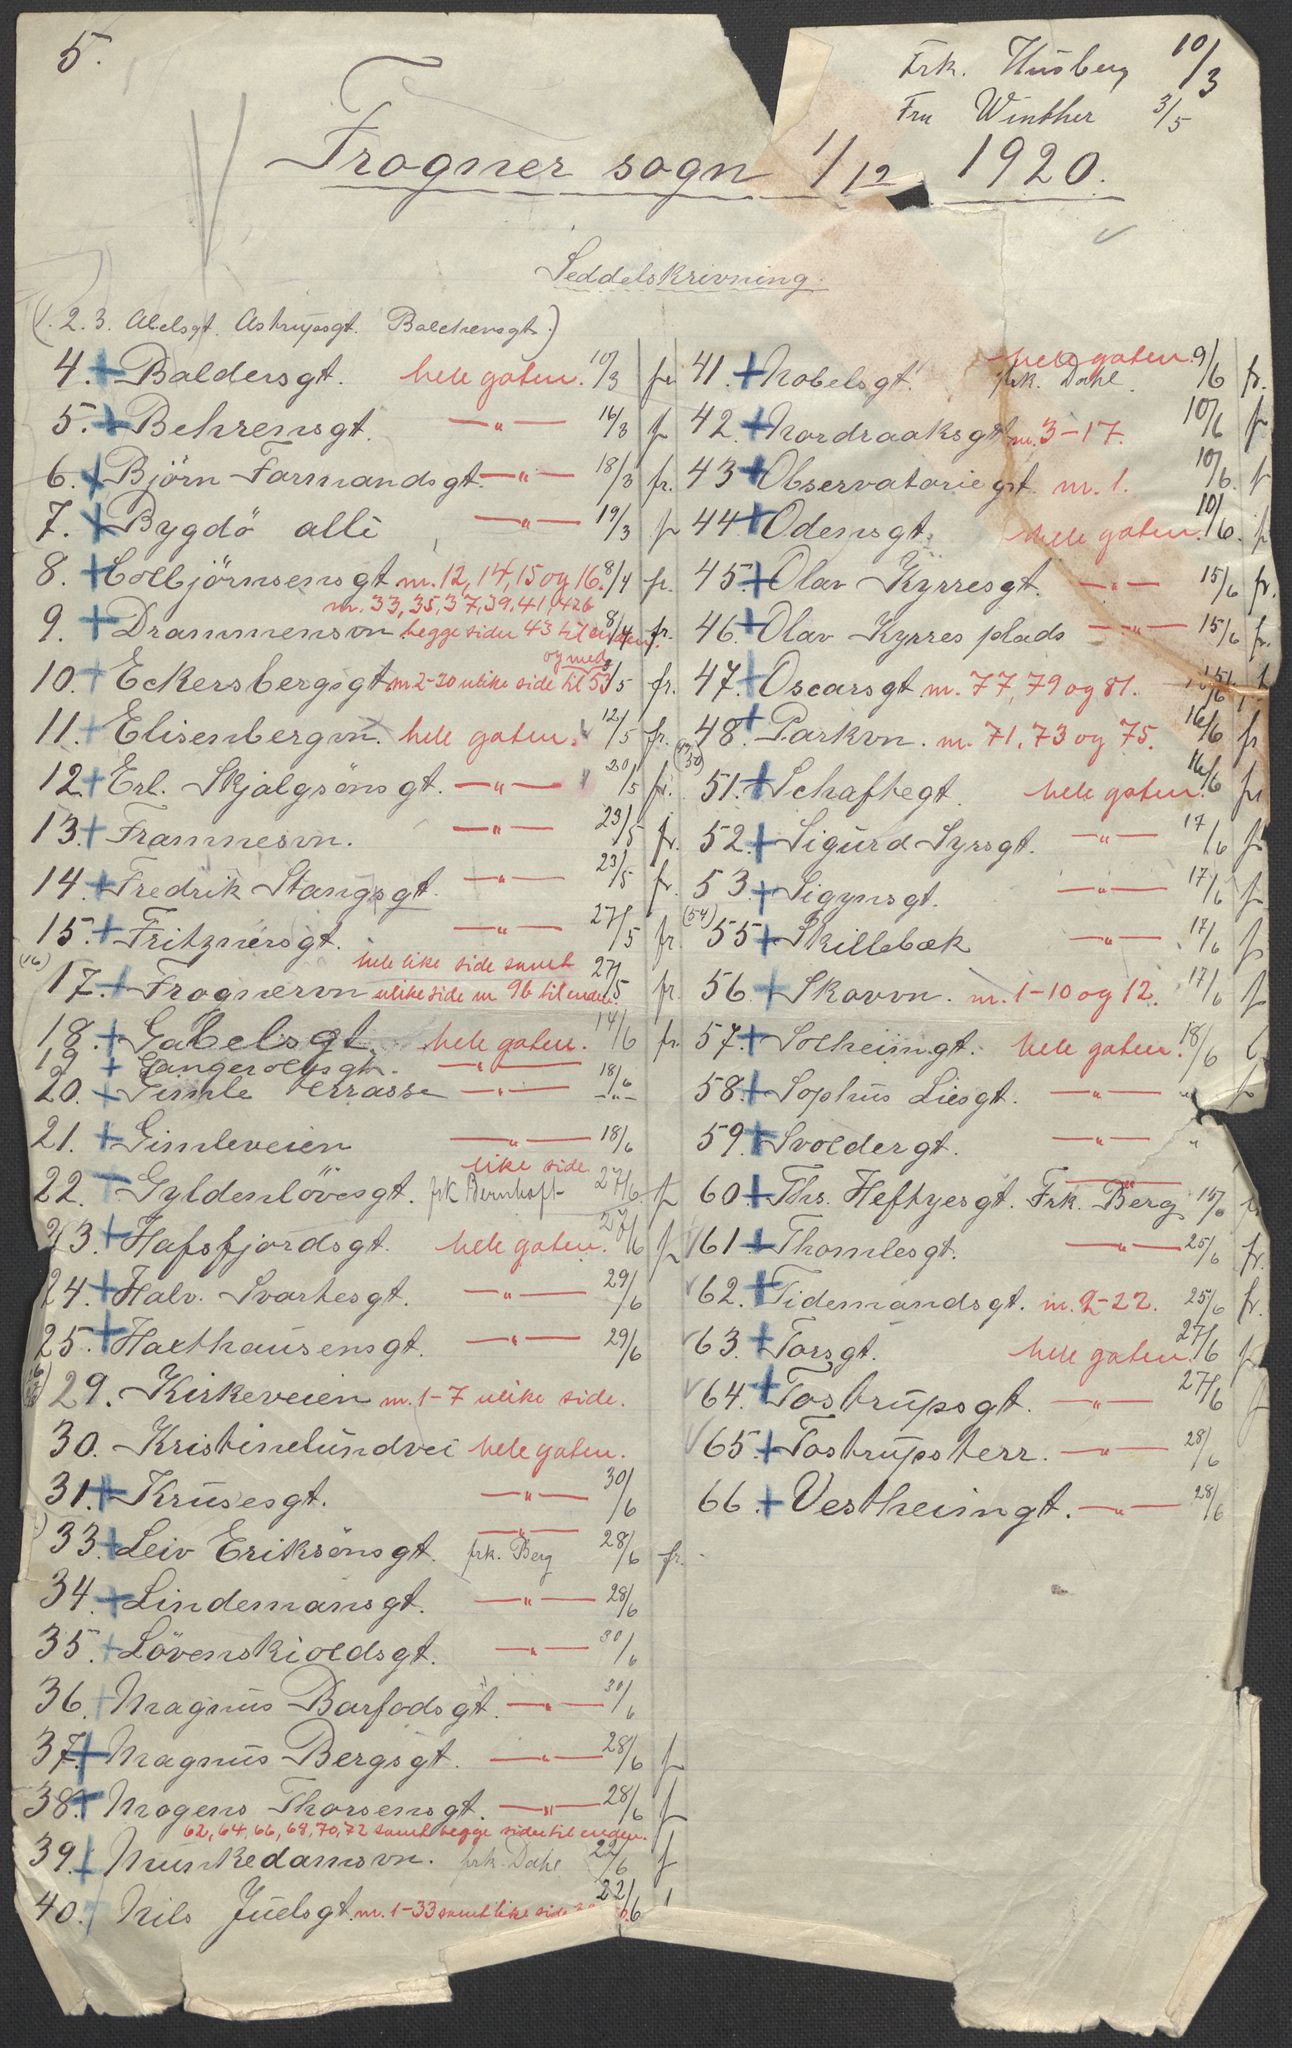 5.
Frk. Husberg 10/3
Fru Winther 3/5
Frogner sogn 1/12 1920.
Seddelskrivning.
(1. 2. 3. Abelsgt. Astrupsgt. Balchensgt.)
4. + Baldersgt. hele gaten. 10/3 fr
5. + Behrensgt. —"— 16/3 fr
6. + Björn Farmandsgt. —"— 18/3 fr.
7. + Bygdö allé —"— 19/3 fr
8. + Colbjörnsensgt nr. 12, 14, 15 og 16. 8/4 fr.
nr. 33, 35, 37, 39, 41, 42b
9. + Drammensvn begge sider 43 til enden. 8/4 fr.
og med
10. + Eckersbergsgt nr 2-20 ulike side til 53 /5 fr.
11. + Elisenbergvn. hele gaten. 12/5 fr.
12. + Erl. Skjalgsönsgt. —"— 20/5 fr.
13. + Framnesvn. —"— 23/5 fr.
14. + Fredrik Stangsgt. —"— 23/5 fr.
15. + Fritznersgt. —"— 27/5 fr
hele like side samt
(16) 17. + Frognervn ulike side nr 9b til enden. 27/5 fr.
18. + Gabelsgt. hele gaten. 14/6 fr.
19 + Gangerolfsgt. —"—
20. + Gimle terrasse —"— 18/6 —"—
21. + Gimleveien —"— 18/6
like side
22. Gyldenlövesgt. frk Bernhoft 27/6 fr
23. + Hafsfjordsgt. hele gaten. 27/6 fr
24. + Halv. Svartesgt. —"— 29/6
25. + Haxthausensgt. —"— 29/6
29. Kirkeveien nr. 1-7 ulike side.
30. Kristinelundvei hele gaten.
31. + Krusesgt. —"— 30/6
—"—
33. + Leiv Eriksönsgt. frk. Berg 28/6 fr.
34. + Lindemansgt. —"— 28/6
35. + Lövenskioldsgt. —"— 30/6
36. + Magnus Barfodsgt. —"— 30/6
37. + Magnus Bergsgt. —"— 28/6 fr
38. + Mogens Thorsensgt. —"— 28/6 fr
62, 64, 66, 68, 70, 72 samt begge sider til enden.
39. + Munkedamsvn. frk. Dahl 22/6 fr
40. + Nils Juelsgt. nr. 1-33 samt like side 22/6
41. + Nobelsgt. hele gaten. frk. Dahl. 9/6 fr.
42. + Nordraaksgt nr. 3-17. 10/6 fr
43 + Observatoriegt nr. 1. 10/6. fr
44 + Odensgt. hele gaten. 10/6. fr
45. + Olav Kyrresgt. —"— 15/6 fr.
46. + Olav Kyrres plads —"— 15/6 fr.
47. + Oscarsgt nr. 77, 79 og 81. 15/6
48. + Parkvn. nr. 71, 73 og 75. 16/6 fr
(49 50)
51. + Schaftegt. hele gaten. 16/6 fr
52. + Sigurd Syrsgt. —"— 17/6 fr
53. + Sigynsgt. —"— 17/6 fr
(54) 55 + Skillebæk —"— 17/6 fr
56. + Skovvn. nr. 1-10 og 12. 17/6 fr
57. + Solheimgt. hele gaten. 18/6
58. + Sophus Liesgt. —"— " fr
59. + Svoldergt. —"— "
—"—
60. + Ths. Heftyesgt. Frk. Berg
61. + Thomlesgt. —"— 25/6 fr.
62. + Tidemandsgt. nr. 2-22. 25/6 fr.
63. + Torsgt. hele gaten. 27/6 fr
64. + Tostrupsgt. —"— 27/6 fr
65. + Tostrupsterr. —"— 28/6
66. + Vestheimgt. —"— 28/6